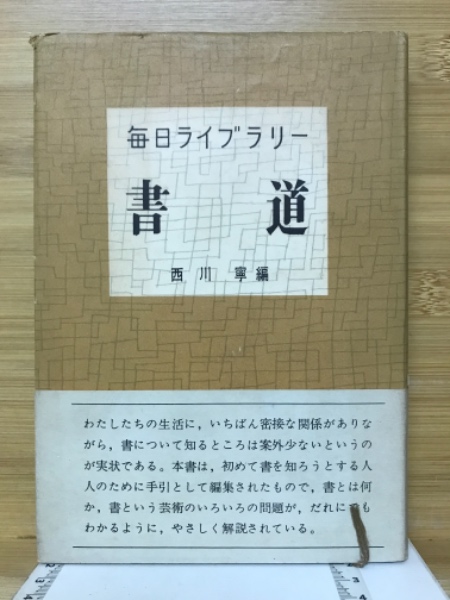 毎日ライブラリー
書道
西川寧編
わたしたちの生活に，いちばん密接な関係がありな
がら，書について知るところは案外少ないというの
が実状である。本書は，初めて書を知ろうとする人
人のために手引として編集されたもので，書とは何
か，書という芸術のいろいろの問題が，だれにも
わかるように，やさしく解説されている。